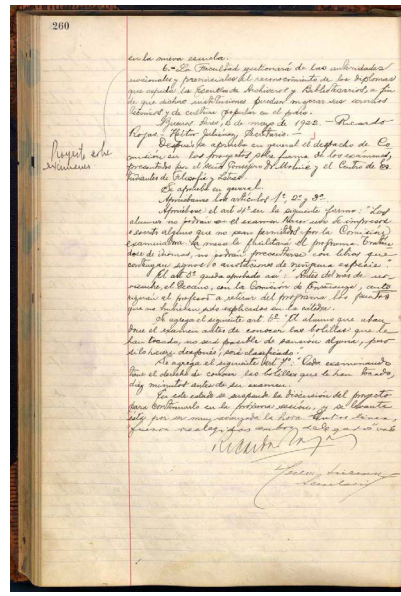 260
en la nueva escuela.
6.- La Facultad gestionará de las autoridades
nacionales y provinciales el reconocimiento de los diplomas
que expide la Escuela de Archiveros y Bibliotecarios, a fin
de que dichas instituciones puedan mejorar sus servicios
técnicos y de cultura popular en el país.
Buenos Aires, de mayo de 1922. - Ricardo
Rojas - Secretario. -
Proyecto sobre
exámenes
Después se aprueba en general el despacho de Co
misión en los proyectos sobre forma de los exámenes,
presentados por el Señor Consejero y el Centro de Es
tudiantes de Filosofía y Letras.
Se aprueba en general.
Apruébanse los artículos 1º, 2º y 3º.
Apruébase el art. 4º en la siguiente forma: "Los
alumnos no podrán en el examen hacer uso de impresos
o escrito alguno que no sean permitidos por la Comisión
examinadora. La mesa le facilitará el programa.
de idiomas, no podrán presentarse con libros que
contengan signos o anotaciones de ninguna especie."
El art. 5º queda aprobado así: "Antes del mes de no-
viembre, el Decano, con la Comisión de Enseñanza, auto
rizará al profesor a retirar del programa los puntos
que no hubieran sido explicados en la cátedra.
Se agrega el siguiente art. 6º: "El alumno que aban
done el examen antes de conocer las bolillas que le
han tocado, no será pasible de sanción alguna, pero
si lo hiciere después, será clasificado."
Se agrega el siguiente art. 7º: "Cada examinando
tiene el derecho de conocer las bolillas que le han tocado,
diez minutos antes de su examen.
En este estado se suspende la discusión del proyecto
para continuarla en la próxima sesión, y se levanta
ésta por ser muy avanzada la hora. Entre líneas,
vale
Ricardo Rojas
Secretario